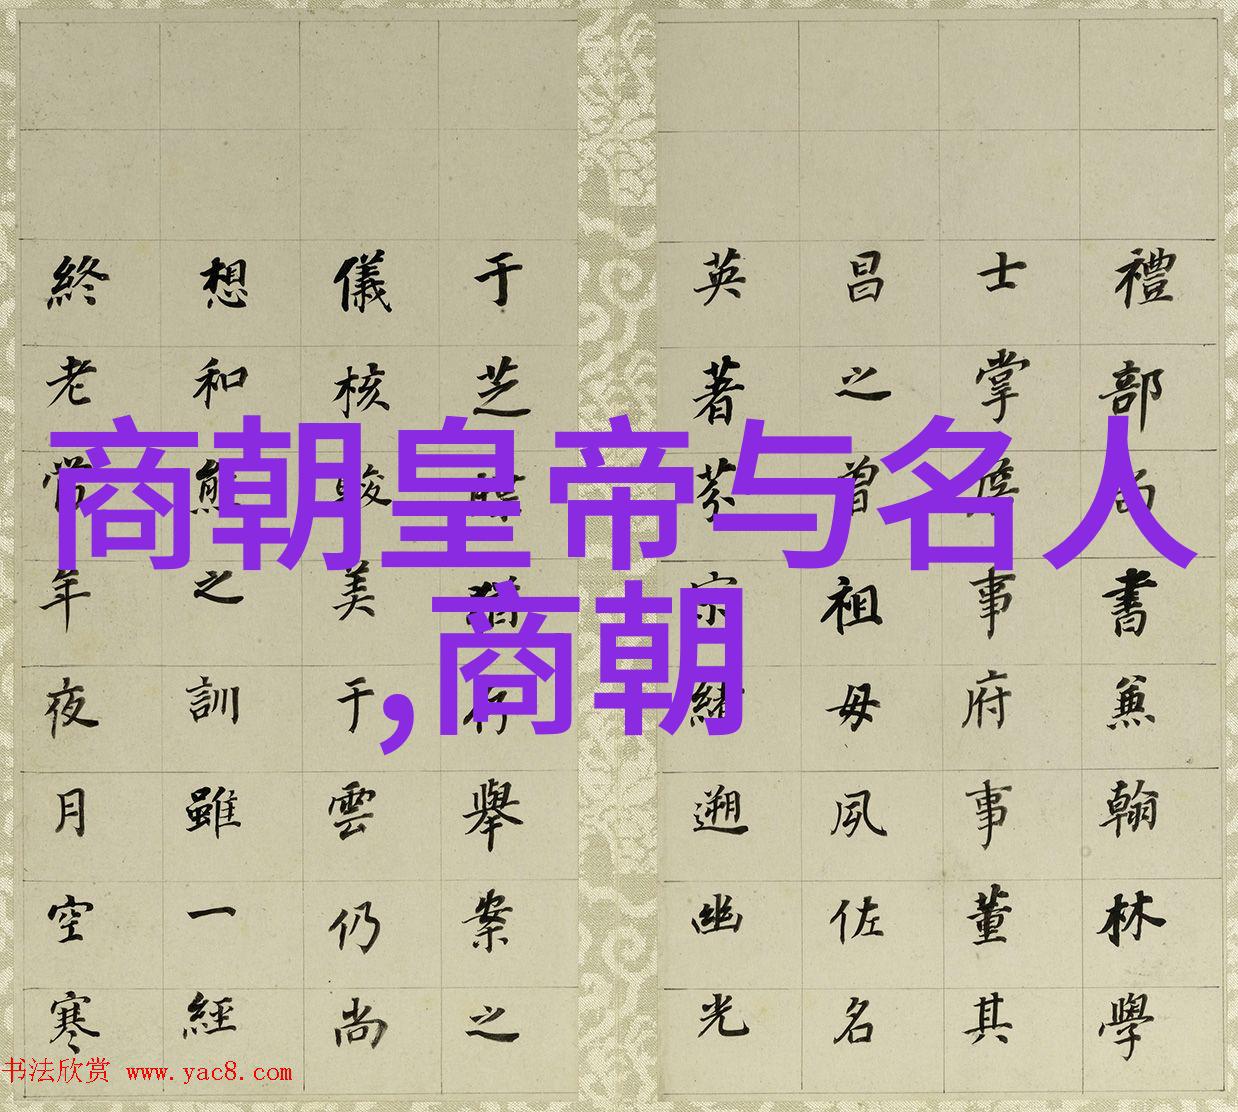 商朝皇帝与名人
,商朝
禮部尚書兼翰林學
士掌詹事府事董其
昌之曾祖母夙佐名
英著芬宗緒遡幽光
于芝行舉案之
儀核駿美于雲仍尚
想和熊之訓雖一經
終老當年夜月空寒
书法欣赏 www.yac8.com